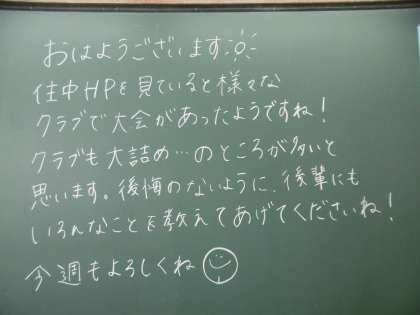 おはようございます
住中HPを見ていると様々な
クラブで大会があったようですね！
クラブも大詰め…のところが多いと
思います。後悔のないように、後輩にも
いろんなことを教えてあげてくださいね！
今週もよろしくね